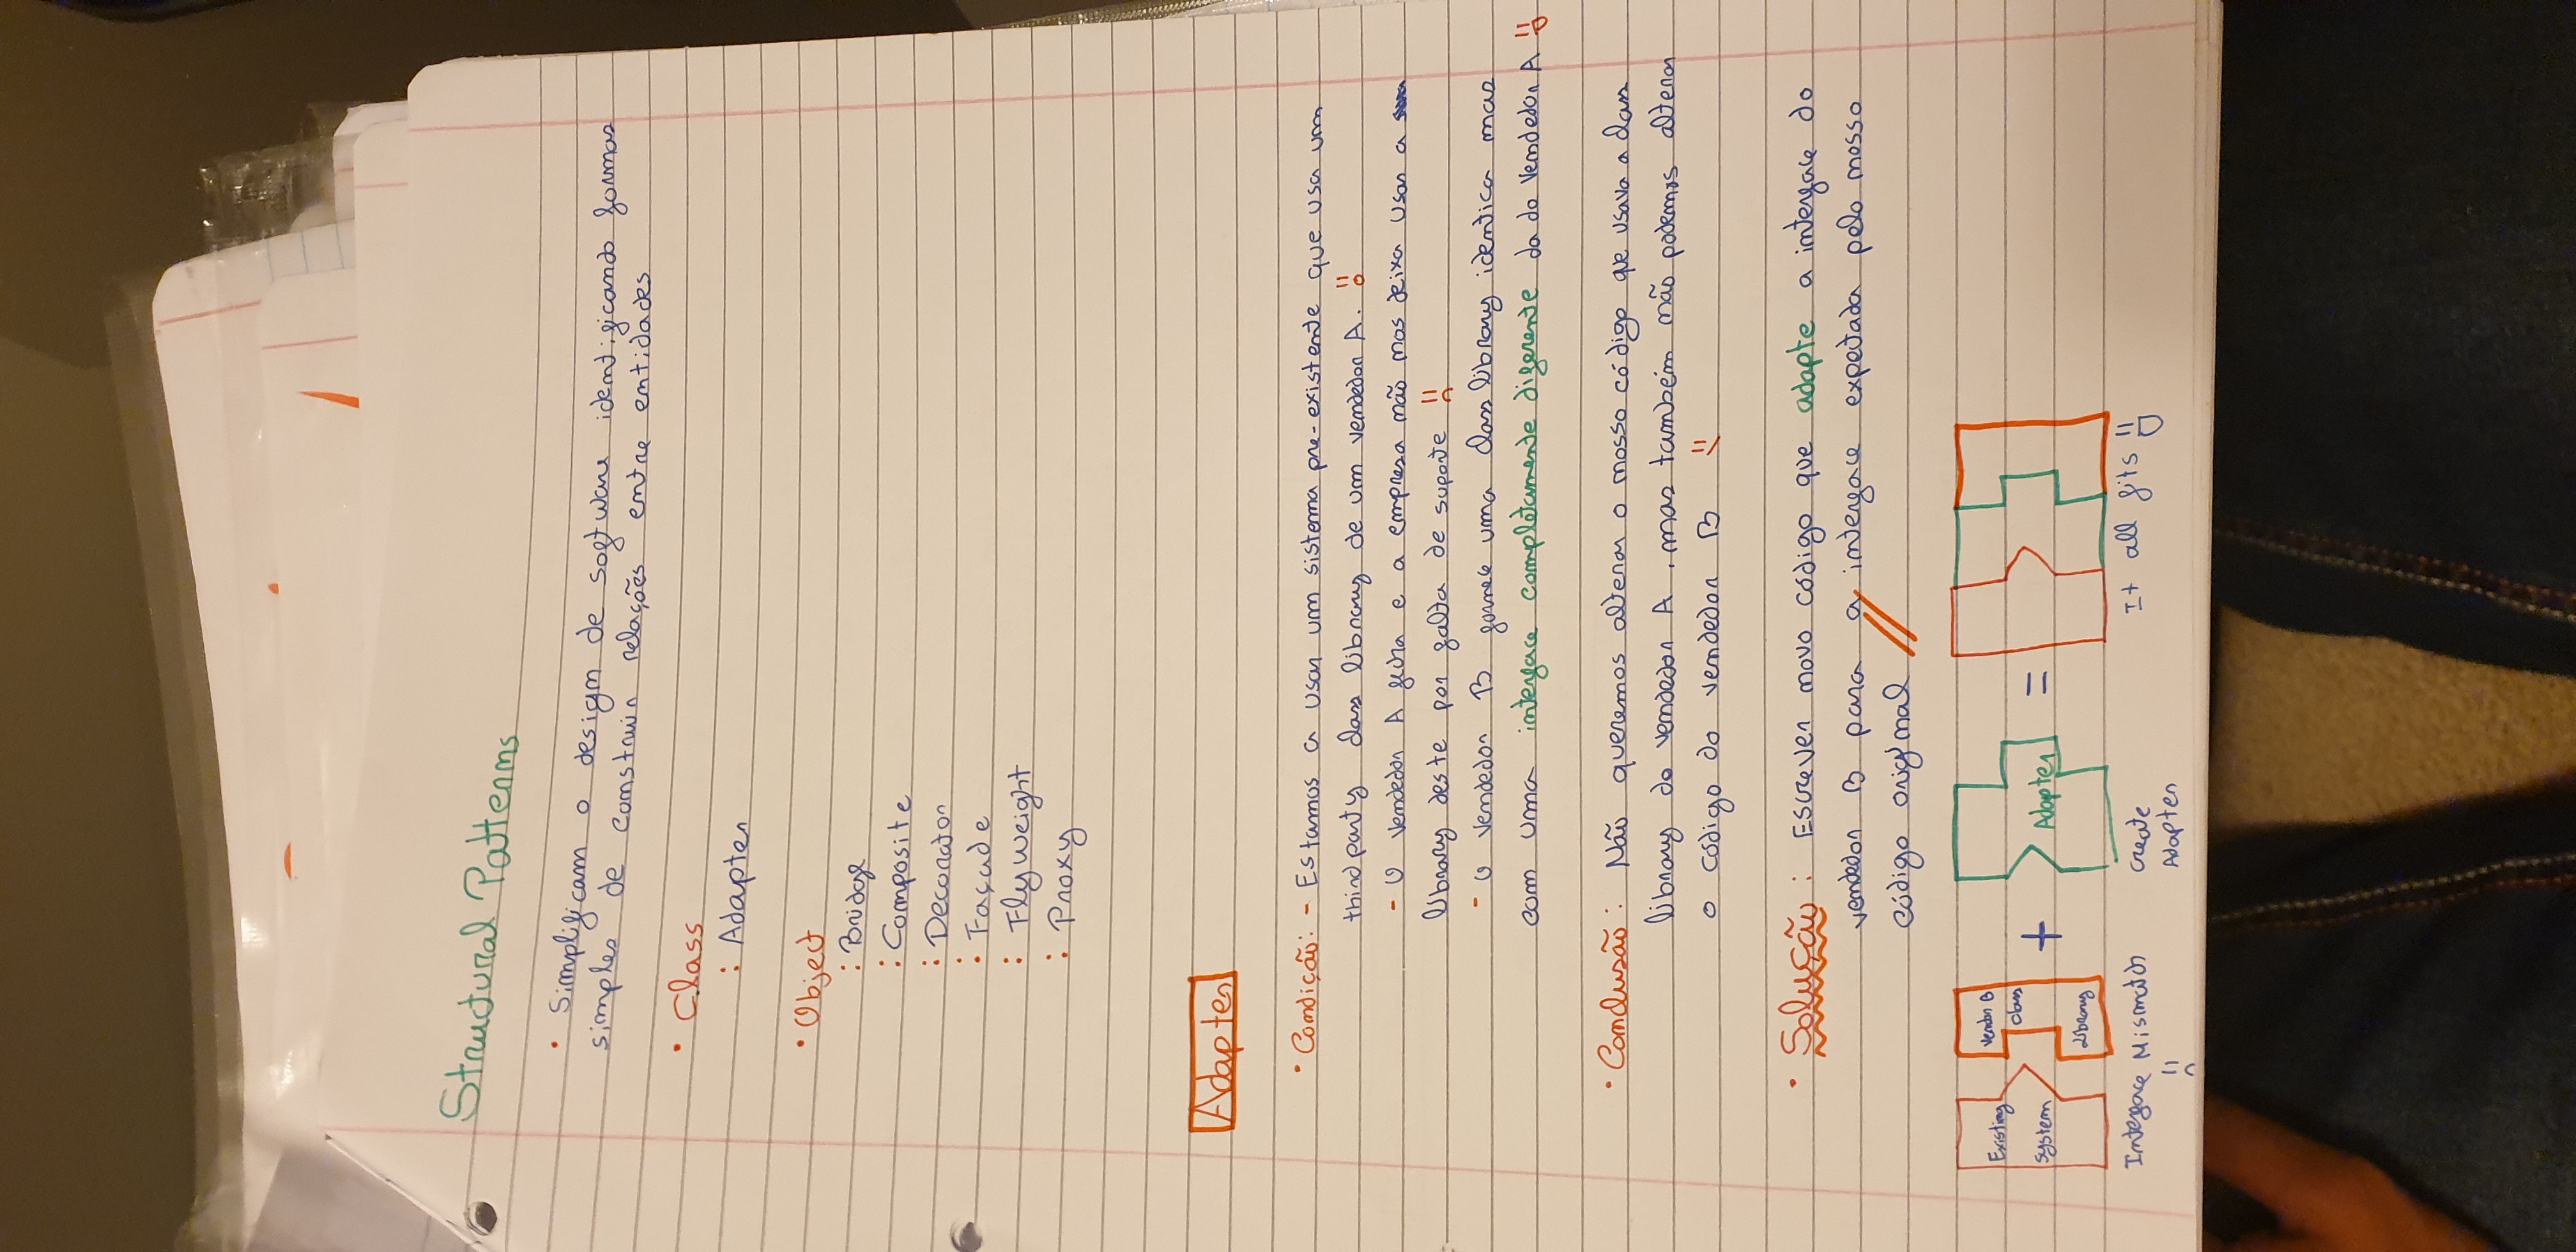 Structural Patterns
• Simplificam o design de software identificando formas
simples de construir relações entre entidades
• Class
: Adapter
• Object
: Bridge
: Composite
: Decorator
: Façade
: Flyweight
: Proxy
Adapter
• Condição: - Estamos a usar um sistema pre-existente que usa um
third party class library de um vendedor A.
- O vendedor A fecha e a empresa não nos deixa usar a
library deste por falta de suporte
- O vendedor B fornece uma class library identica mas
com uma interface completamente diferente da do vendedor A
• Conclusão: Não queremos alterar o nosso código que usava a class
library do vendedor A, mas também não podemos alterar
o código do vendedor B
• Solução: Escrever novo código que adapte a interface do
vendedor B para a interface expectada pelo nosso
código original //
Existing
System
Vendor B
Class
Library
+
Adapter
=
Interface Mismatch
Create
Adapter
It all fits